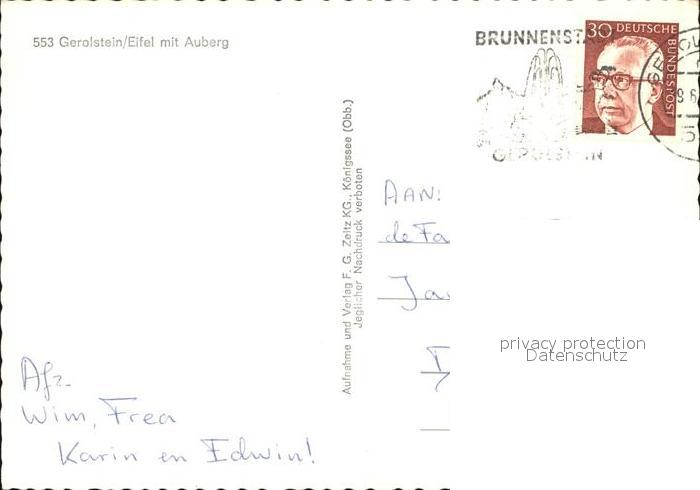 553 Gerolstein/Eifel mit Auberg
BRUNNENSTADT
GEROLSTEIN
30 DEUTSCHE
BUNDESPOST
Aufnahme und Verlag F. G. Zeitz KG., Königssee (Obb.)
Jeglicher Nachdruck verboten
AAN:
de Fa
Ja
privacy protection
Datenschutz
Afz.
Wim, Frea
Karin en Edwin!